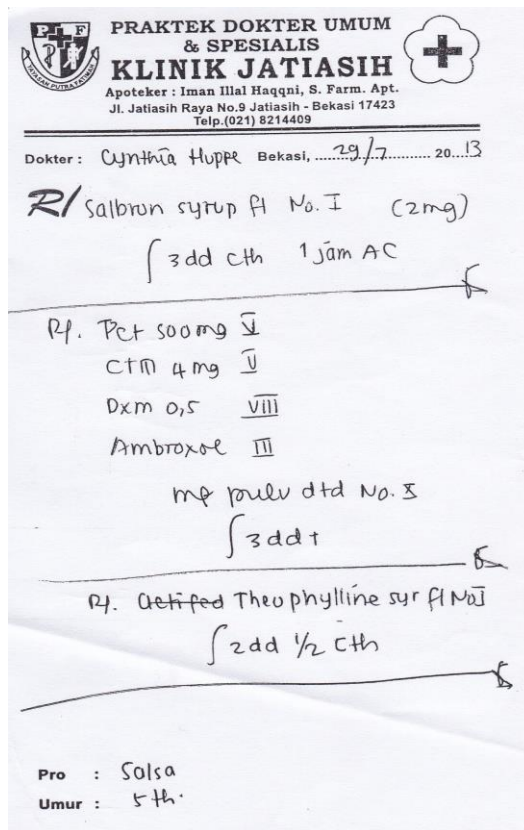 P F
YAYASAN PUTRA FATIMAH
PRAKTEK DOKTER UMUM
& SPESIALIS
KLINIK JATIASIH
Apoteker : Iman Illal Haqqni, S. Farm. Apt.
Jl. Jatiasih Raya No.9 Jatiasih - Bekasi 17423
Telp.(021) 8214409
Dokter : Cynthia Huppe Bekasi, 29/7 20 13
R/ Salbron syrup fl No. I (2mg)
∫ 3 dd cth 1 jam AC
R/. Pct 500mg V
CTM 4 mg V
Dxm 0,5 VIII
Ambroxol III
mf pulv dtd No. X
∫ 3 dd 1
R/. actifed Theophylline syr fl No I
∫ 2 dd 1/2 cth
Pro : Salsa
Umur : 5 th.